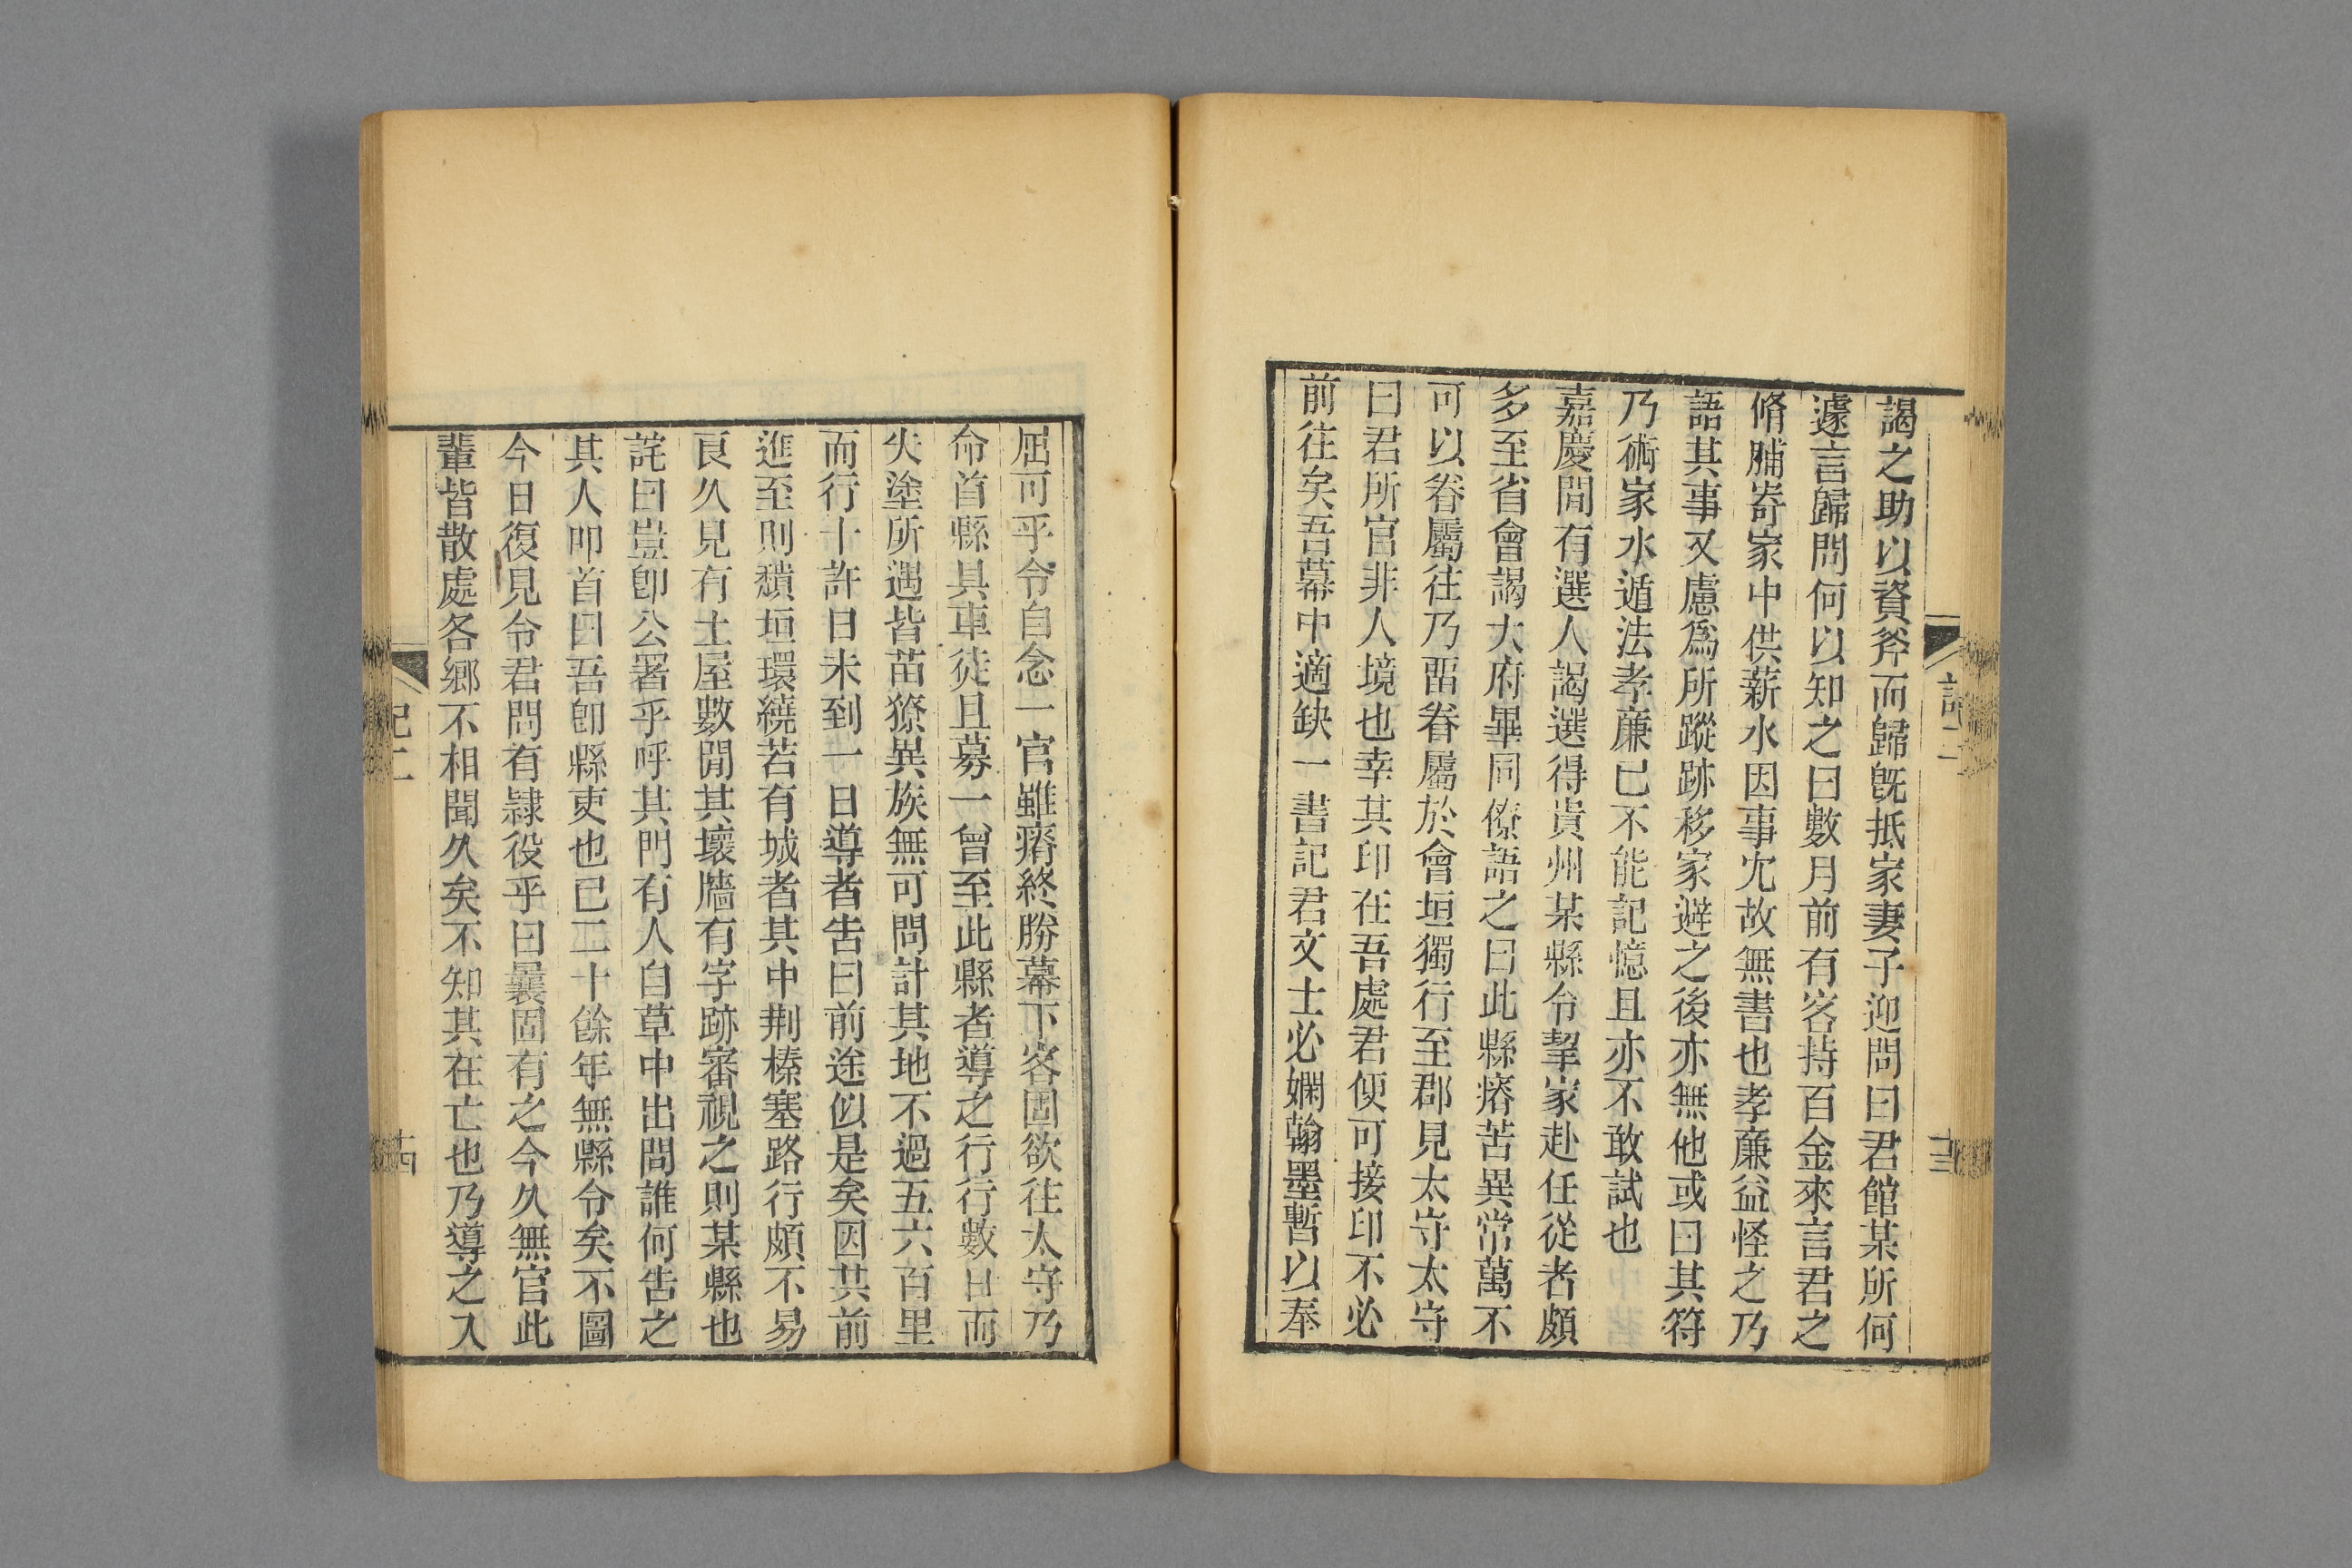 謁之助以資斧而歸旣抵家妻子迎問曰君館某所何
遽言歸問何以知之曰數月前有客持百金來言君之
脩脯寄家中供薪水因事冗故無書也孝廉益怪之乃
語其事又慮爲所蹤跡移家避之後亦無他或曰其符
乃術家水遁法孝廉已不能記憶且亦不敢試也
嘉慶間有選人謁選得貴州某縣令挈家赴任從者頗
多至省會謁大府畢同僚語之曰此縣瘠苦異常萬不
可以眷屬往乃畱眷屬於會垣獨行至郡見太守太守
曰君所官非人境也幸其印在吾處君便可接印不必
前往矣吾幕中適缺一書記君文士必嫻翰墨暫以奉
屈可乎令自念一官雖瘠終勝幕下客固欲往太守乃
命首縣具車徒且募一曾至此縣者導之行行數日而
失塗所遇皆苗獠異族無可問計其地不過五六百里
而行十許日未到一日導者告曰前途似是矣因其前
進至則頹垣環繞若有城者其中荆榛塞路行頗不易
良久見有土屋數間其壞牆有字跡審視之則某縣也
詫曰豈卽公署乎呼其門有人自草中出問誰何告之
其人叩首曰吾卽縣吏也已二十餘年無縣令矣不圖
今日復見令君問有隸役乎曰曩固有之今久無官此
輩皆散處各鄉不相聞久矣不知其在亡也乃導之入
記二
十四